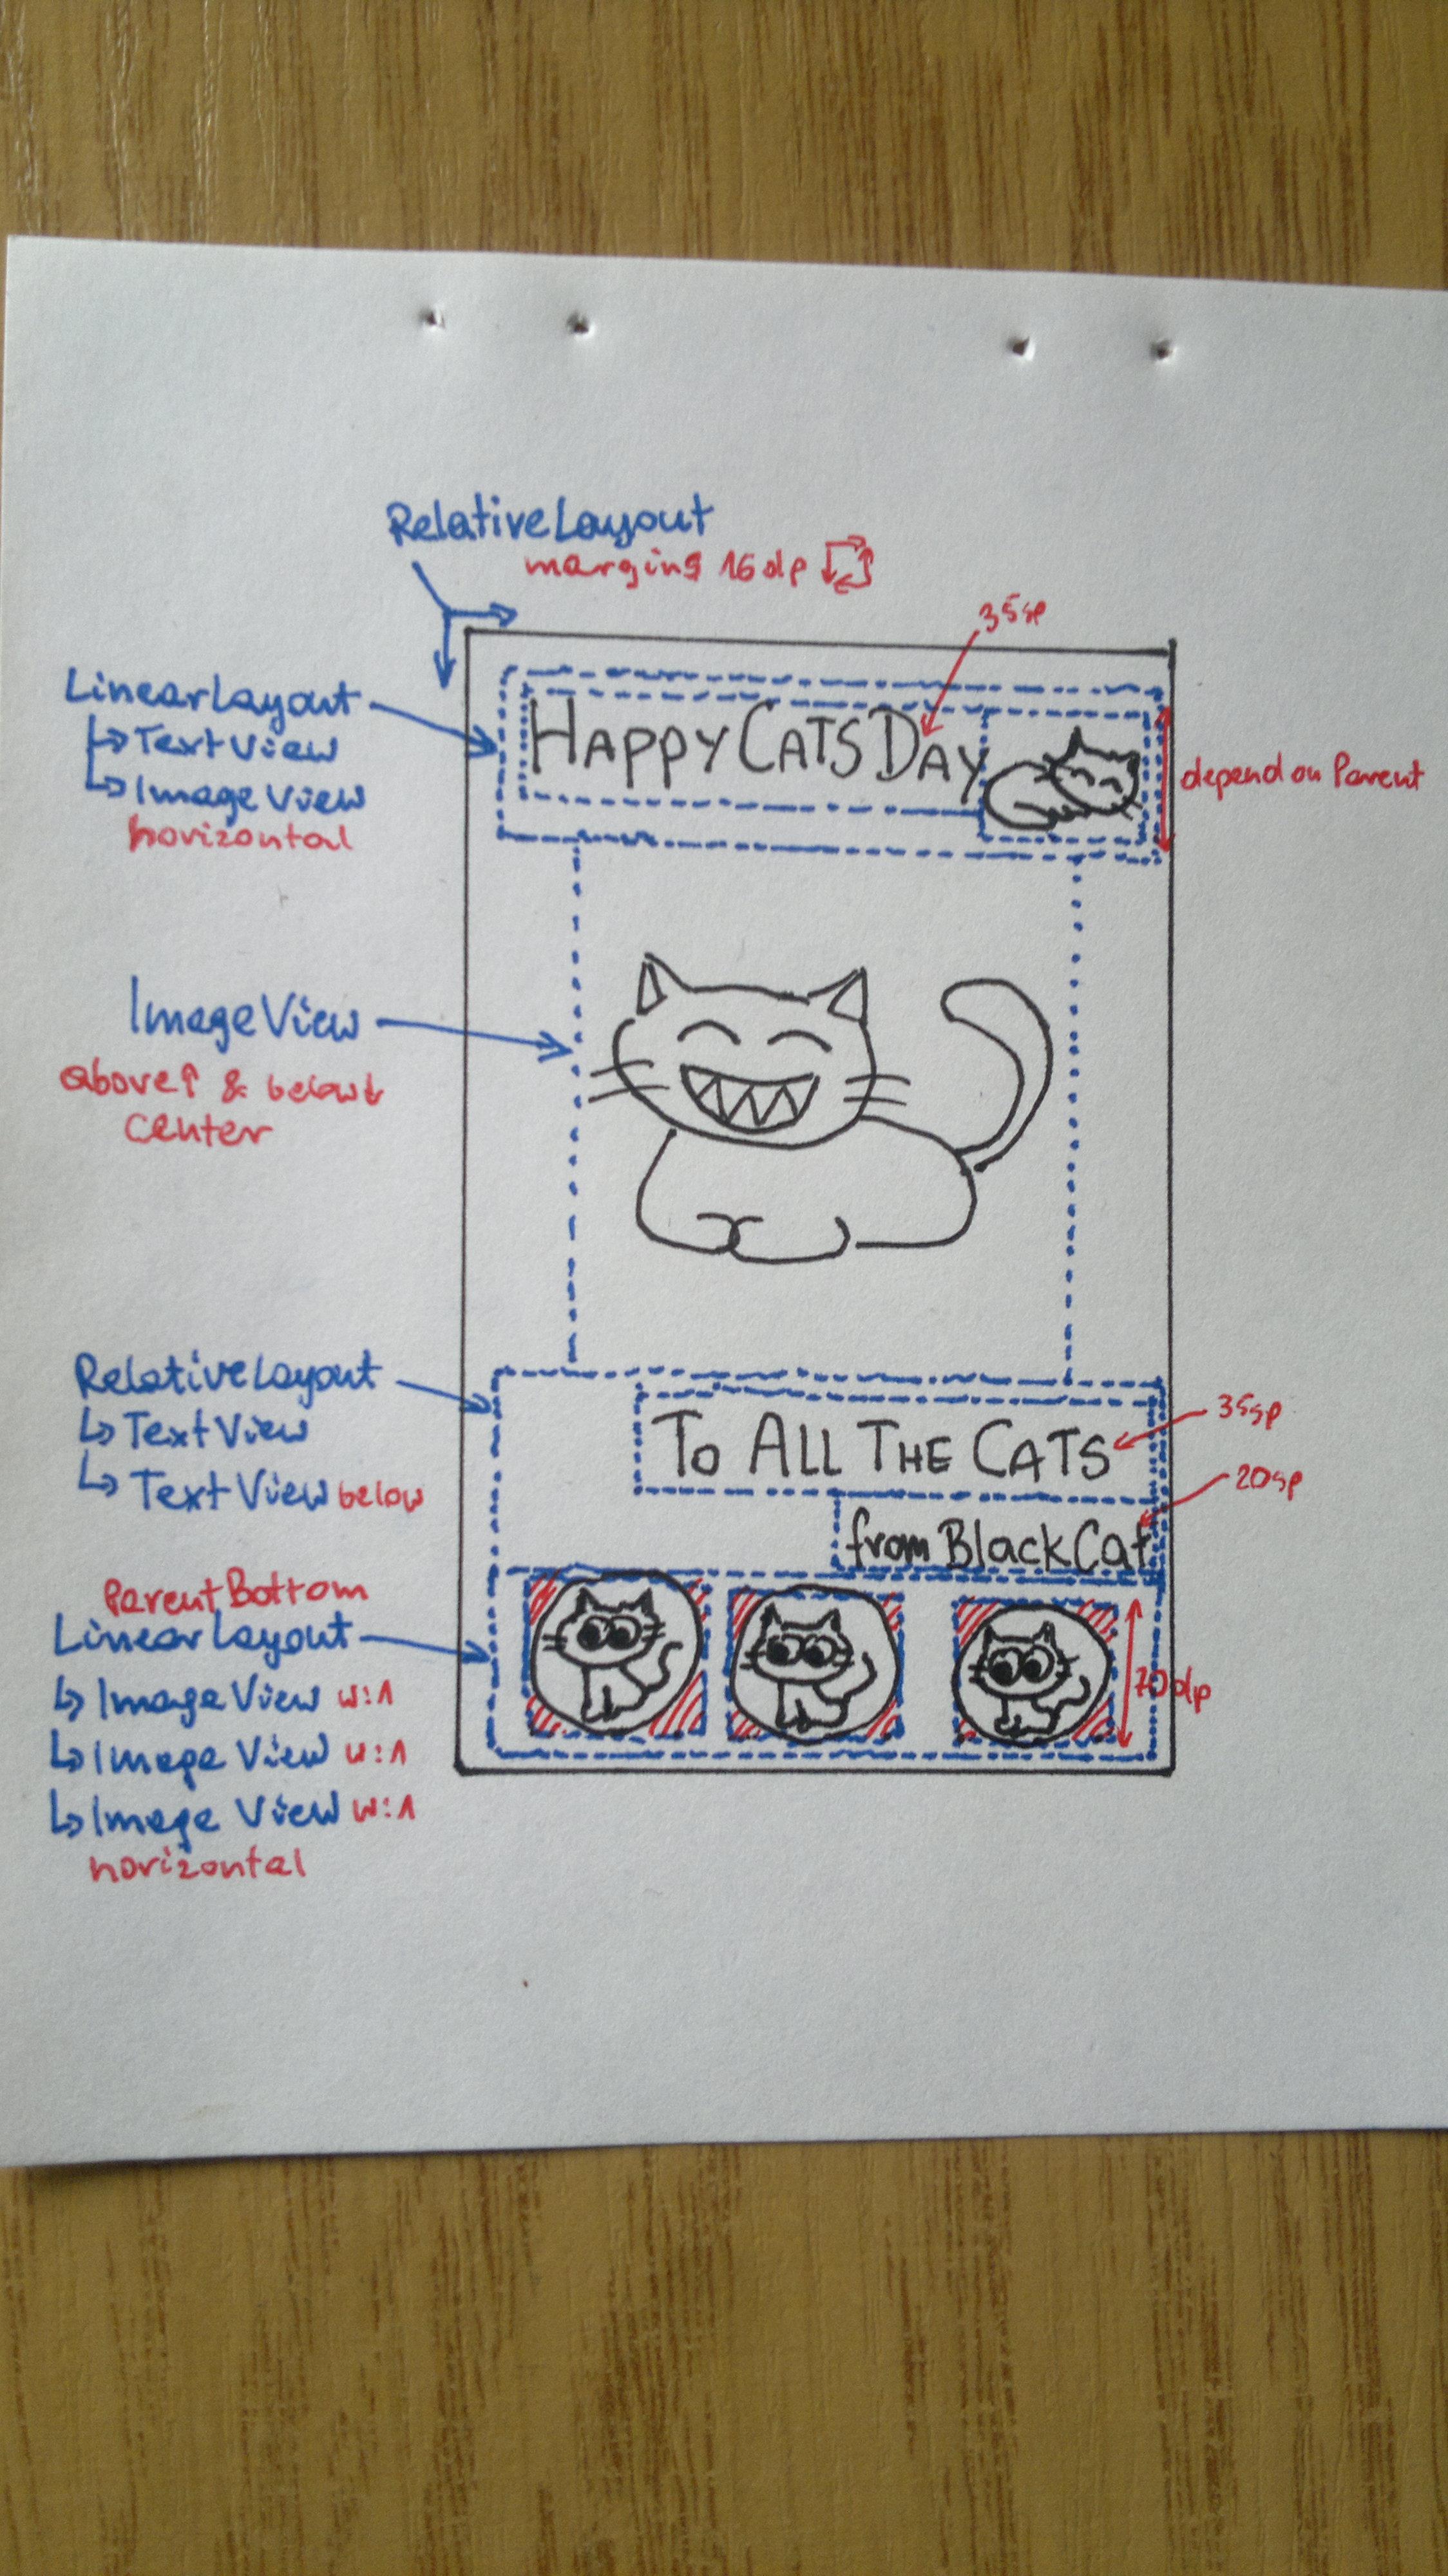 RelativeLayout
margins 16dp
35sp
LinearLayout
↳ TextView
↳ ImageView
horizontal
HAPPY CATS DAY
depend on Parent
ImageView
above↑ & below↓
center
RelativeLayout
↳ TextView
↳ TextView below
To ALL THE CATS
35sp
20sp
from BlackCat
ParentBottom
LinearLayout
↳ ImageView w:1
↳ ImageView w:1
↳ Image View w:1
horizontal
70dp